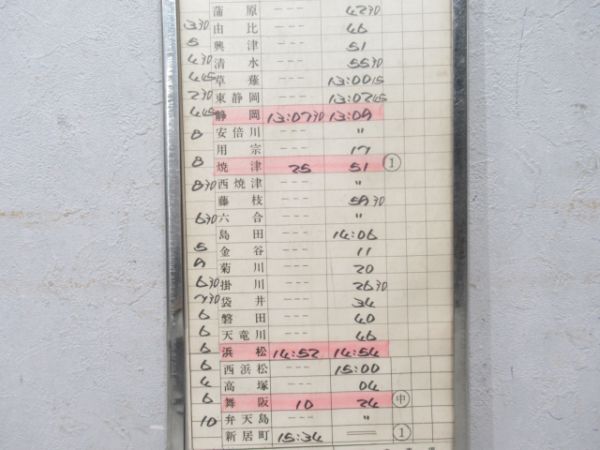 蒲原 --- 4230
330 由比 --- 46
5 興津 --- 51
430 清水 --- 5530
445 草薙 --- 13:0015
230 東静岡 --- 13:0245
445 静岡 13:0730 13:09
8 安倍川 --- "
用宗 --- 17
8 焼津 25 51 ①
830 西焼津 --- "
藤枝 --- 5930
630 六合 --- "
島田 --- 14:06
5 金谷 --- 11
9 菊川 --- 20
630 掛川 --- 2630
730 袋井 --- 34
6 磐田 --- 40
6 天竜川 --- 46
6 浜松 14:52 14:54
6 西浜松 --- 15:00
4 高塚 --- 04
6 舞阪 10 24 ㊥
10 弁天島 --- "
新居町 15:34 ①